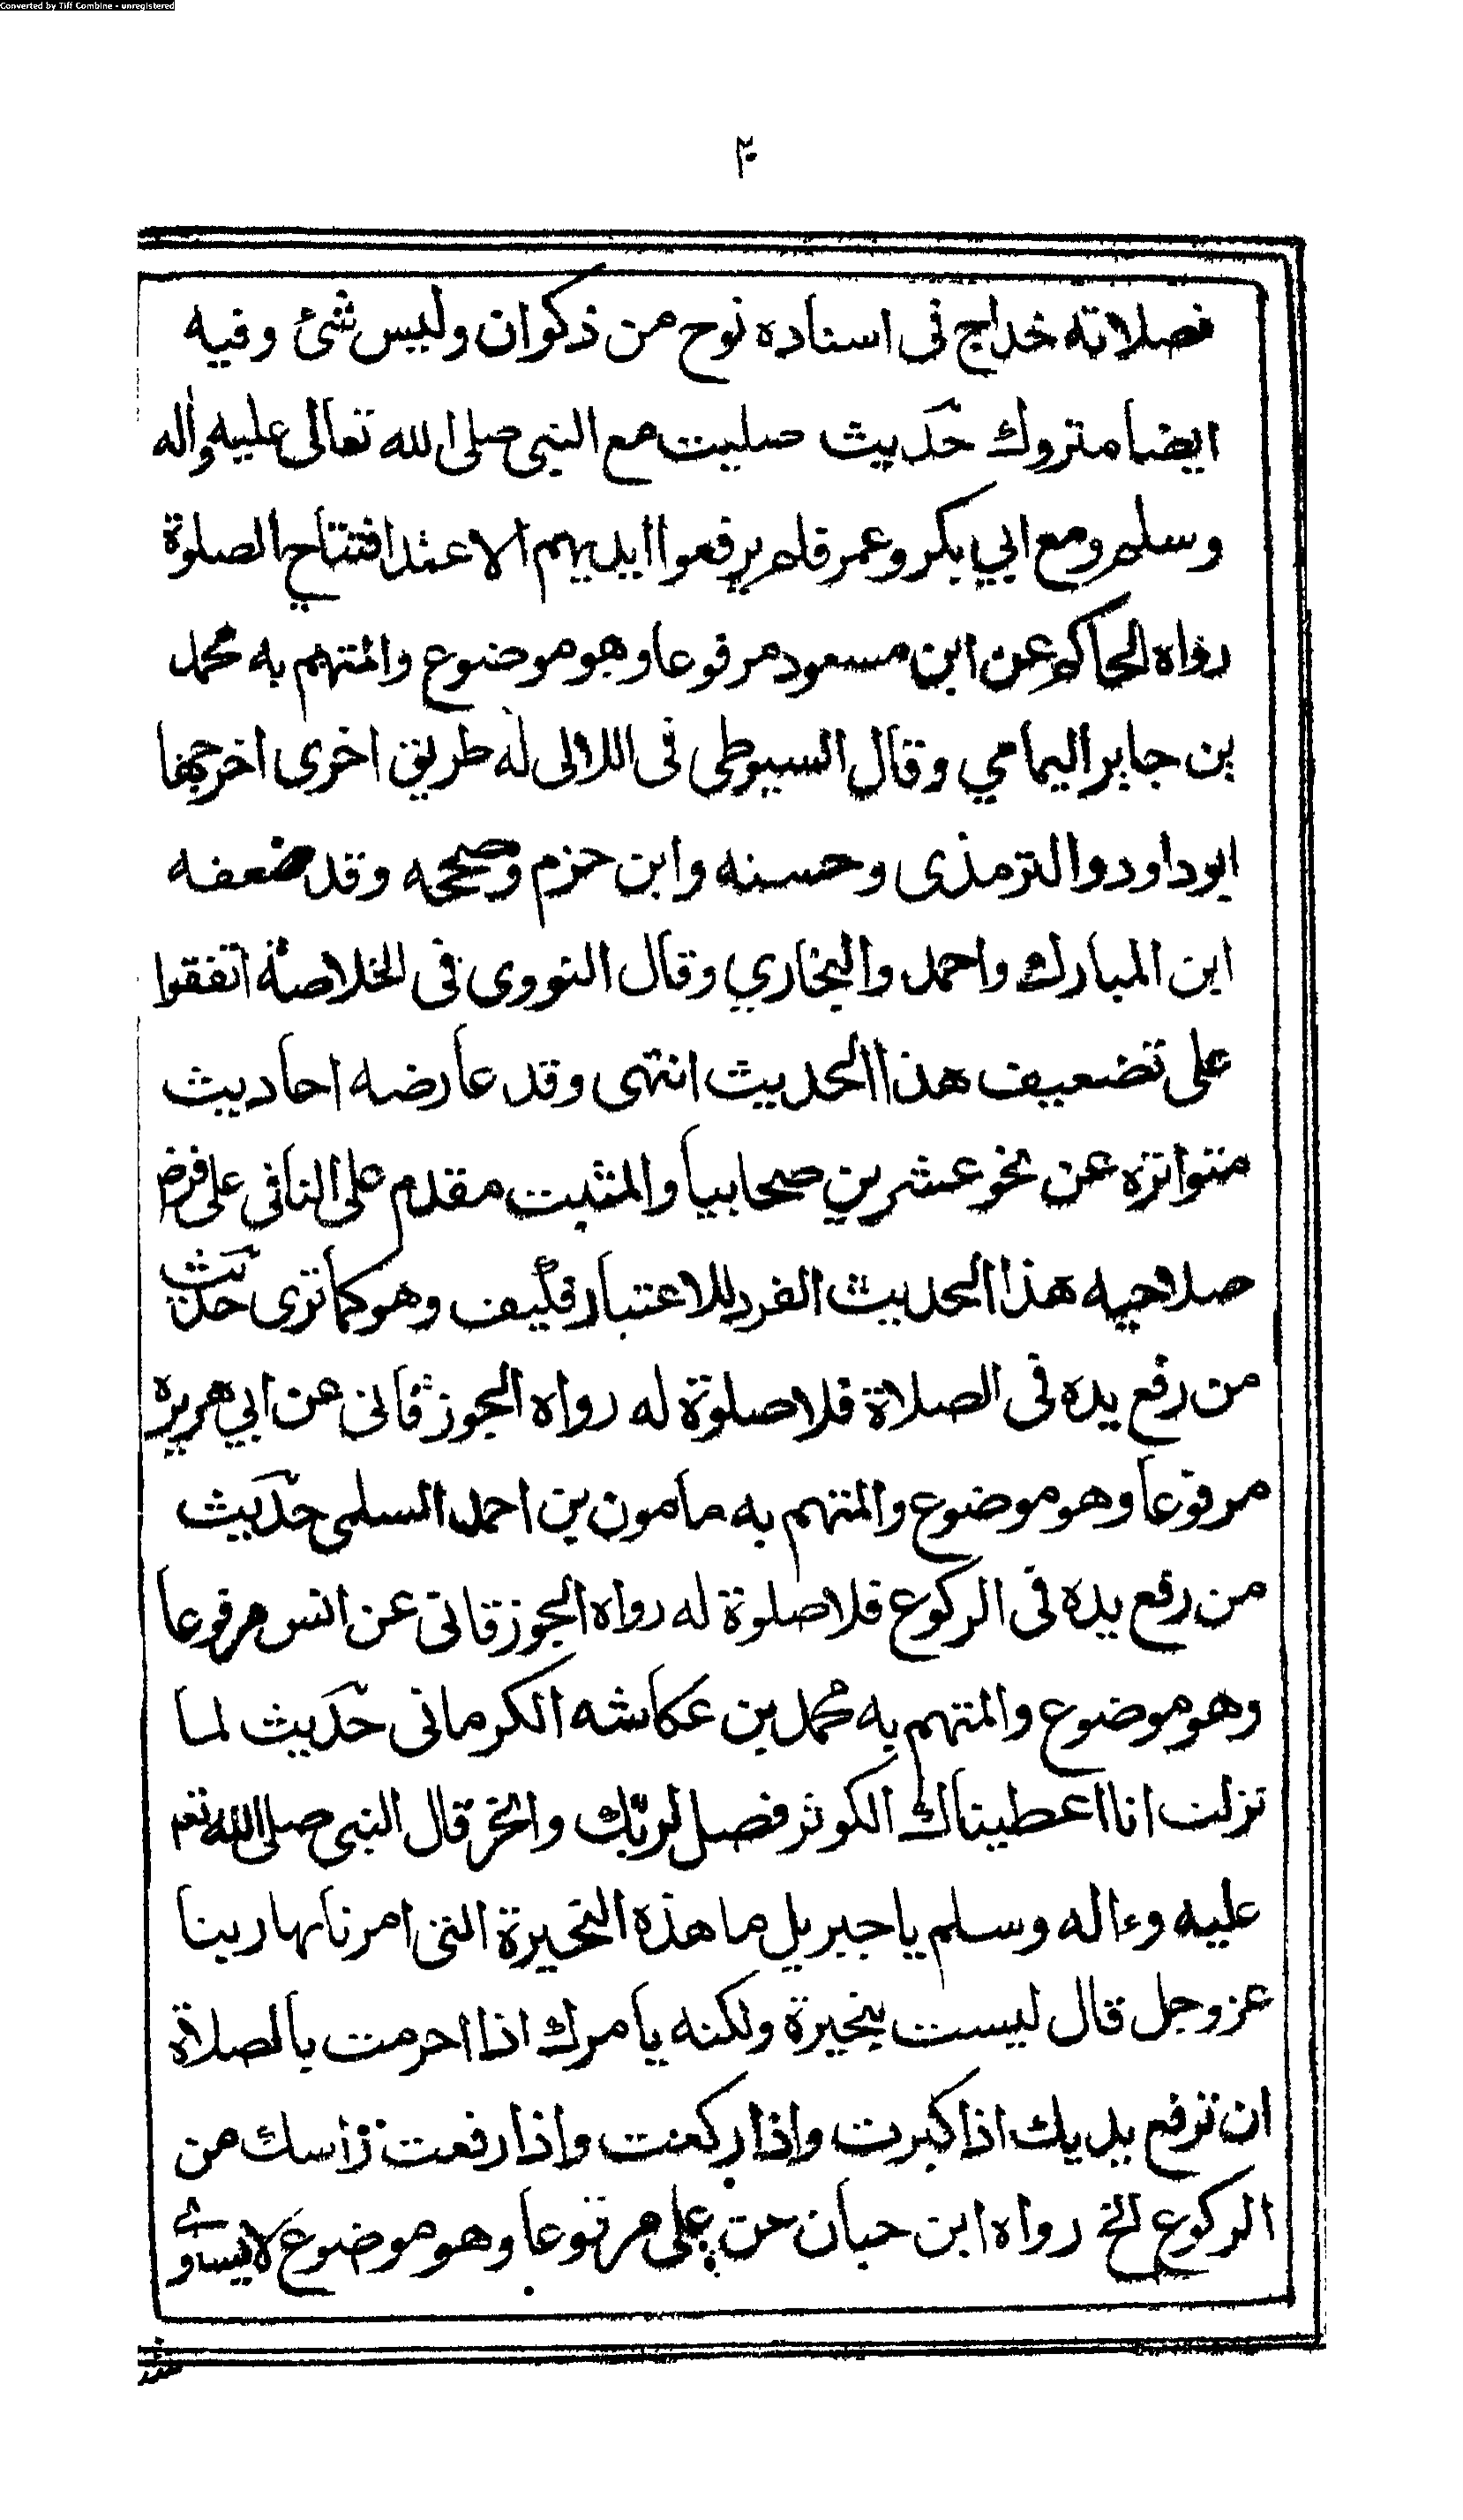 Converted by Tiff Combine - unregistered
٢٠
فصلاته خداج فى اسناده نوح من ذكوان وليس شئ وفيه
ايضا متروك حديث صليت مع النبى صلى الله تعالى عليه واله
وسلم ومع ابي بكر وعمر فلم يرفعوا ايديهم الا عند افتتاح الصلوة
رواه الحاكم عن ابن مسعود مرفوعا وهو موضوع والمتهم به محمد
بن جابر اليمامي وقال السيوطى فى اللالى له طريق اخرى اخرجها
ابو داود والترمذى وحسنه وابن حزم وصححه وقد ضعفه
ابن المبارك واحمد والبخاري وقال النووى فى الخلاصة اتفقوا
على تضعيف هذا الحديث انتهى وقد عارضه احاديث
متواتره عن نحو عشرين صحابيا والمثبت مقدم على النافى على فرض
صلاحيه هذا الحديث الفرد للاعتبار فكيف وهو كما ترى حديث
من رفع يده فى الصلاة فلا صلوة له رواه الجوزقانى عن ابي هريره
مرفوعا وهو موضوع والمتهم به مامون بن احمد السلمى حديث
من رفع يده فى الركوع فلا صلوة له رواه الجوزقانى عن انس مرفوعا
وهو موضوع والمتهم به محمد بن عكاشه الكرمانى حديث لما
نزلت انا اعطيناك الكوثر فصل لربك وانحر قال النبى صلى الله تعم
عليه وءاله وسلم يا جبريل ما هذه النحيرة التى امرنا بها ربنا
عز وجل قال ليست بنحيرة ولكنه يامرك اذا احرمت بالصلاة
ان ترفع يديك اذا كبرت واذا ركعت واذا رفعت راسك من
الركوع الخ رواه ابن حبان عن على مرفوعا وهو موضوع لا يساوى